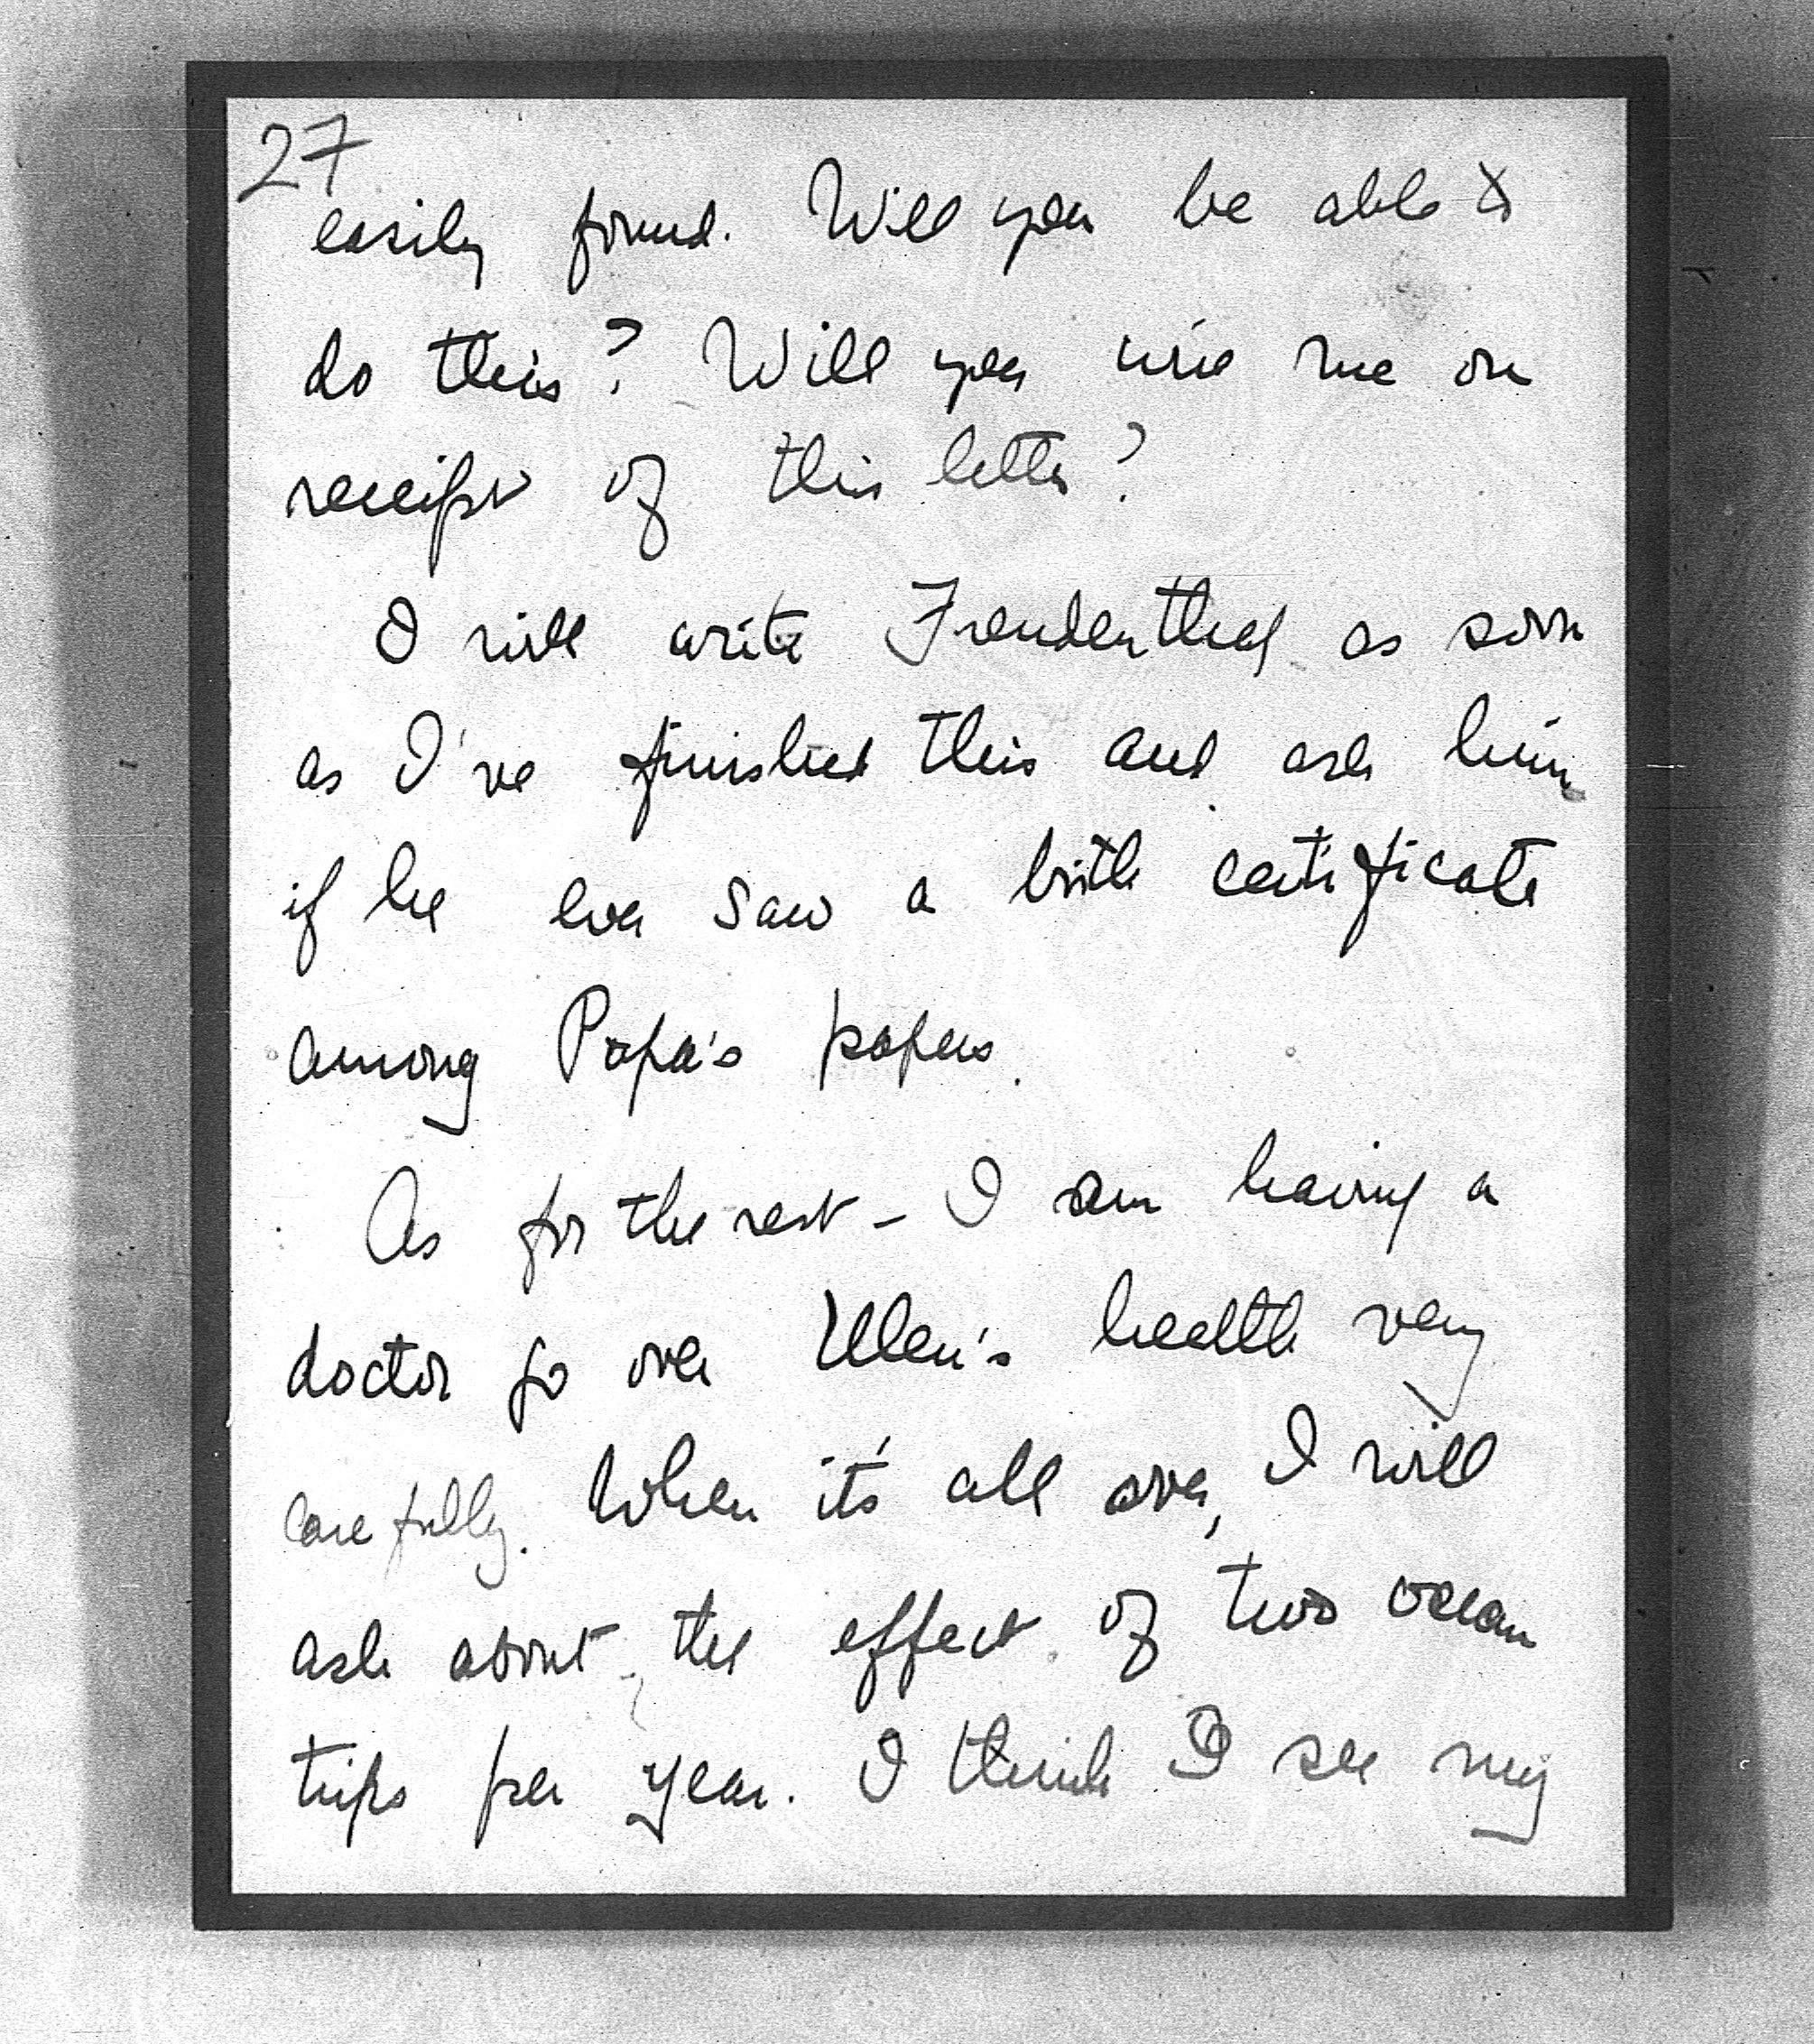 27
easily found. Will you be able to
do this? Will you wire me on
receipt of this letter?
I will write Freudenthal as soon
as I've finished this and ask him
if he ever saw a birth certificate
among Papa's papers.
As for the rest - I am having a
doctor go over Ellen's health very
carefully. When it's all over, I will
ask about the effect of two ocean
trips per year. I think I see my